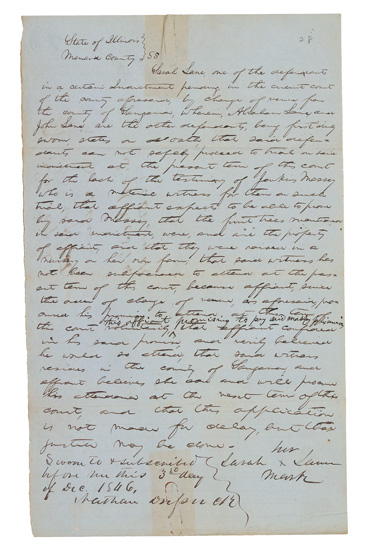 State of Illinois } 28
Menard County } SS
Sarah Lane, one of the defendants
in a certain Indictment pending in the circuit court
of the county aforesaid by change of venue from
the county of Sangamon, wherein, Abraham Lane and
John Lane are the other defendants, being first duly
sworn, states on oath that said defen
dants can not safely proceed to trial on said
indictment at the present term of the court
for the lack of the testimony of Massey
who is a material witness for them on such
trial, that affiant expects to be able to prove
by said Massey that the fruit trees mentioned
in said indictment were, and are the property
of affiant, and that they were raised in a
nursery on her own farm, that said witness has
not been subpoenaed to attend at the pres
ent term of the court, because affiant, since
the order of change of venue, as aforesaid, pro
cured his promise to attend at this term of
the court this affiant promising to pay said Massey that affiant confided
in his said promise, and verily believed
he would so attend that said witness
resides in the county of Sangamon and
affiant believes she can and will procure
his attendance at the next term of this
court, and that this application
is not made for delay, but that
justice may be done.
Sworn to & subscribed } her
before me this 3rd day } Sarah x Lane
of Dec. 1846, } mark
Nathan Dresser Clk